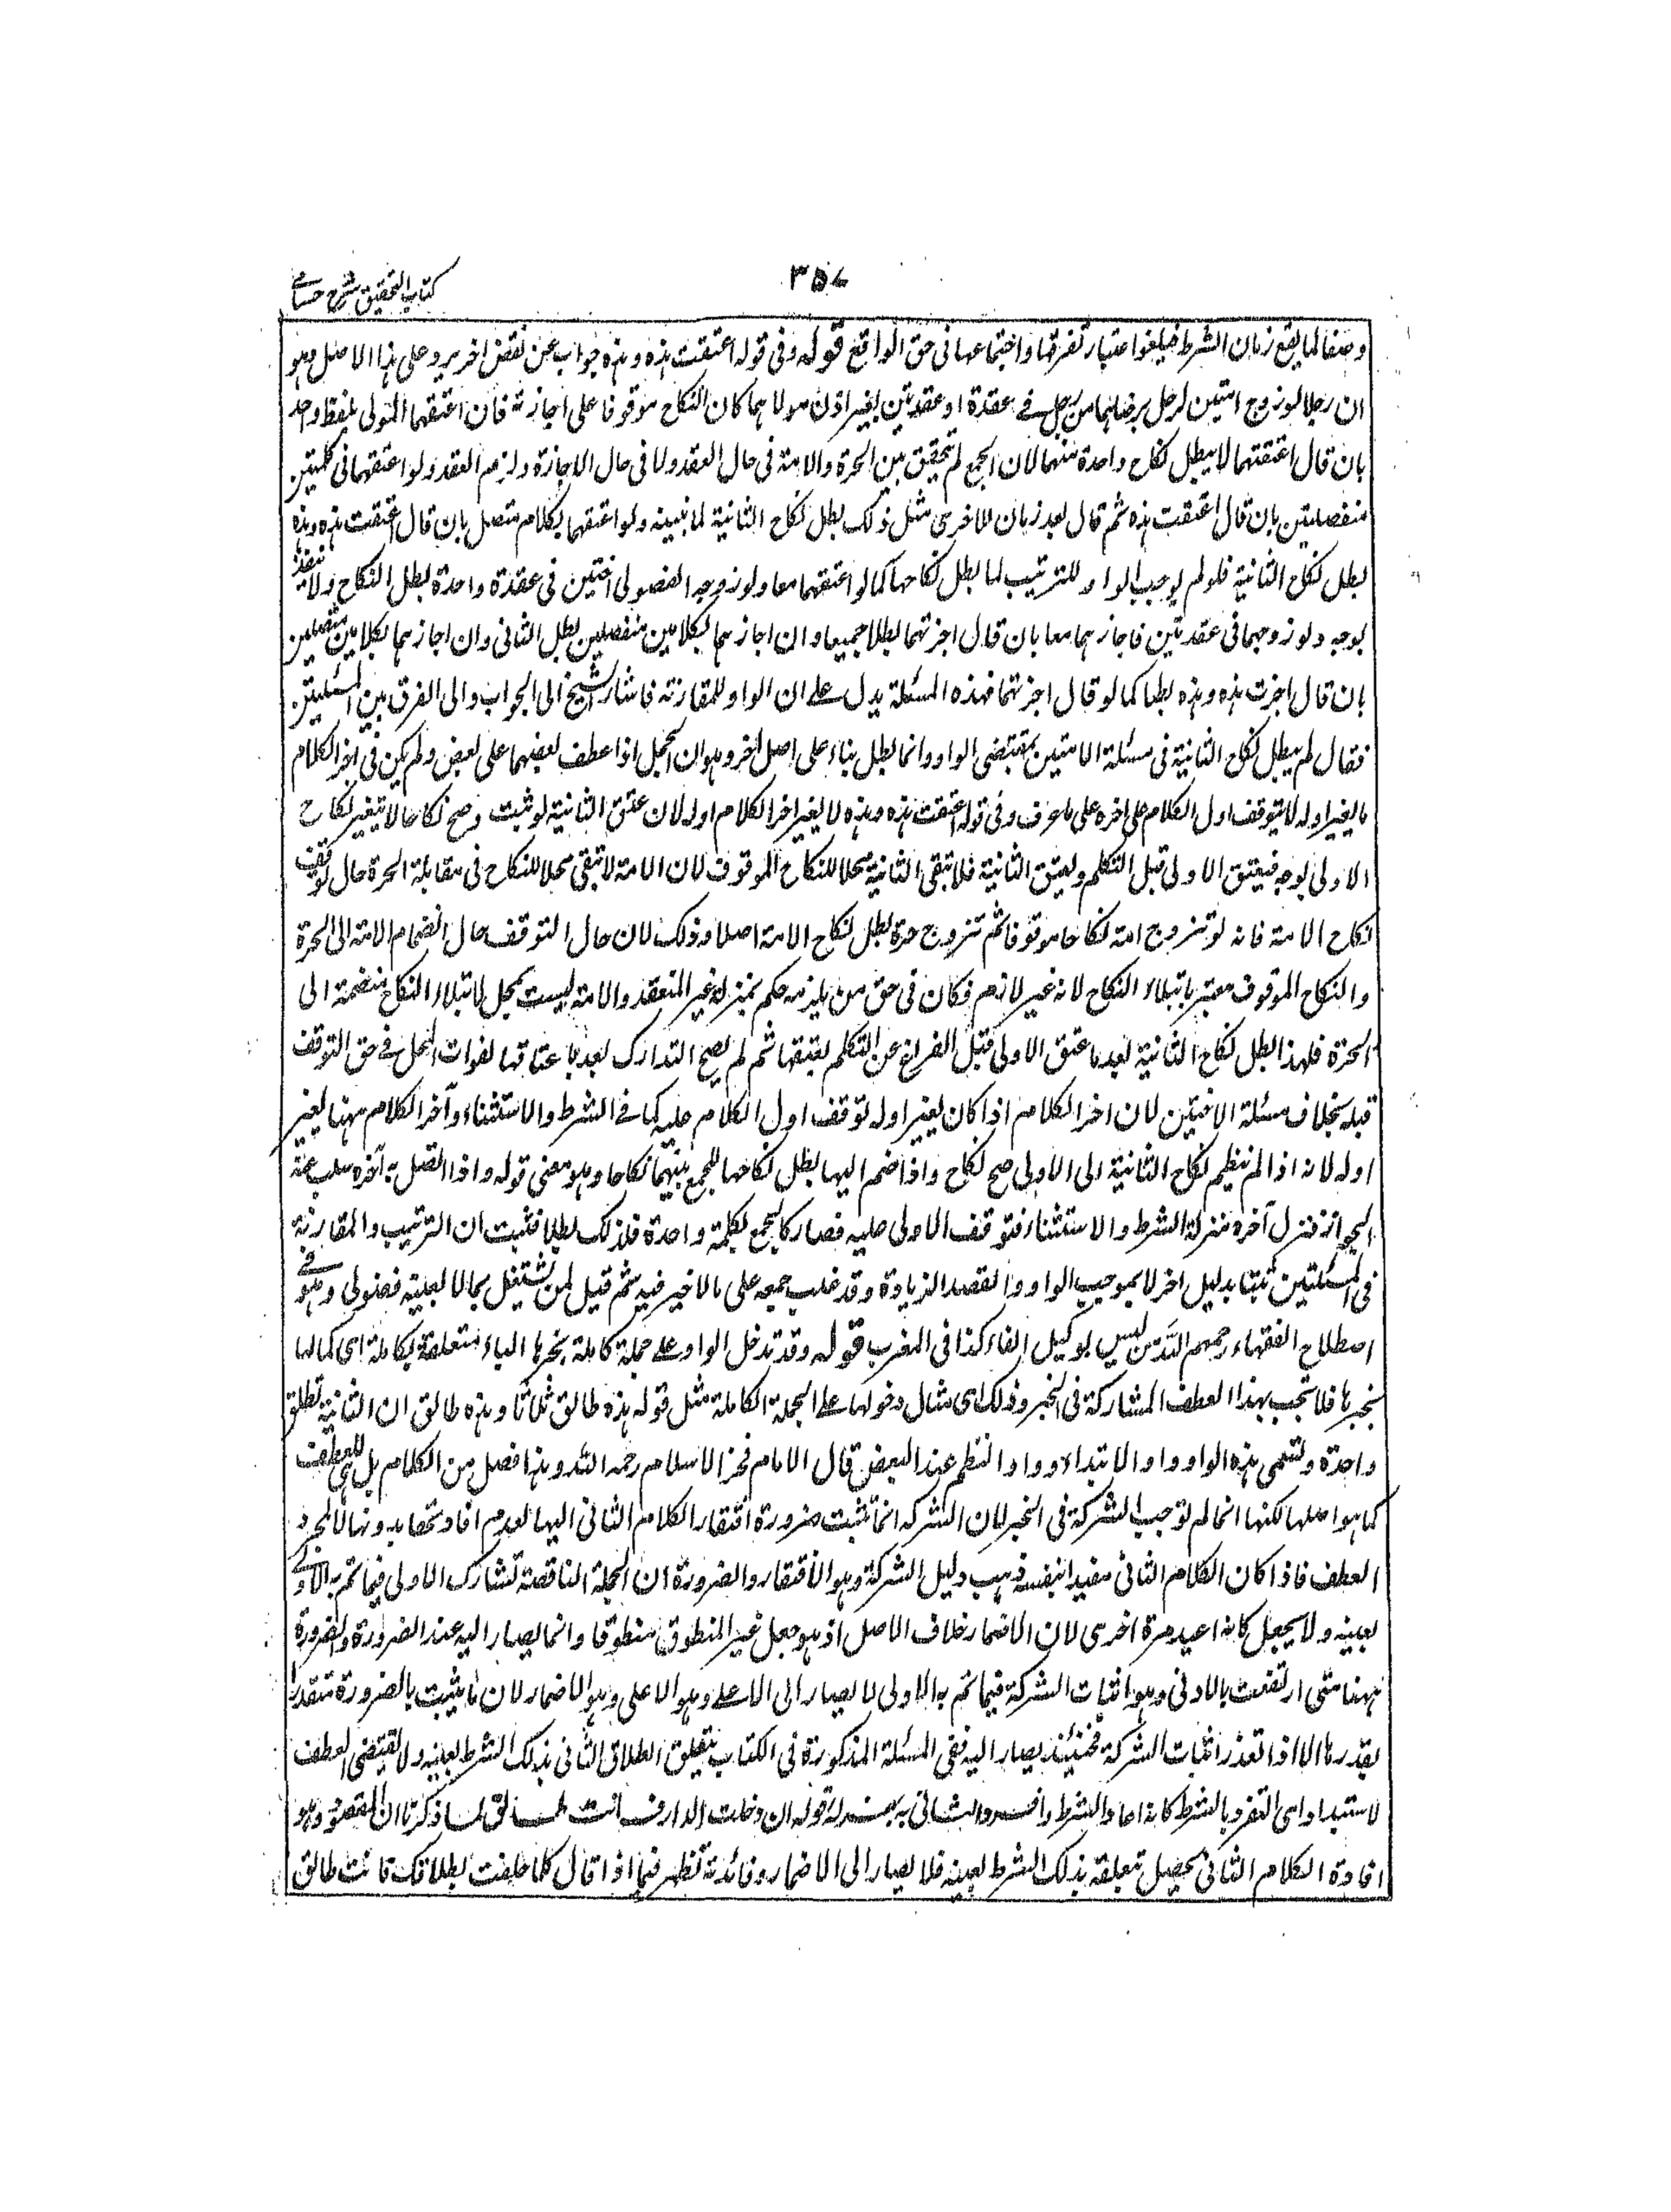 كتاب التحقيق شرح حسامي
٣٥٧
وصفا لما يقع زمان الشرط فيلغوا اعتبار تفرقها واجتماعها في حق الواقع قوله وفي قوله اعتقت هذه وهذه جواب عن نقض اخر يرد على هذا الاصل وهو
ان رجلا لو زوج امتين لرجل برضاهما من رجل في عقدة او عقدتين بغير اذن مولاهما كان النكاح موقوفا على اجازته فان اعتقهما المولى بلفظ واحد
بان قال اعتقتهما لا يبطل نكاح واحدة منهما لان الجمع لم يتحقق بين الحرة والامة في حال العقد ولا في حال الاجازة ولزم العقد ولو اعتقهما في كلمتين
منفصلتين بان قال اعتقت هذه ثم قال بعد زمان للاخرى مثل ذلك بطل نكاح الثانية لما نبينه ولو اعتقهما بكلام متصل بان قال اعتقت هذه وهذه
بطل نكاح الثانية فلو لم يوجب الواو للترتيب لما بطل نكاحها كما لو اعتقهما معا ولو زوجه الفضولى اختين في عقدة واحدة بطل النكاح ولا ينفذ
بوجه ولو زوجهما في عقدتين فاجازهما معا بان قال اجزتهما بطلا جميعا وان اجازهما بكلامين منفصلين بطل الثاني وان اجازهما بكلامين متصلين
بان قال اجزت هذه وهذه بطلا كما لو قال اجزتهما فهذه المسئلة يدل على ان الواو للمقارنة فاشار الشيخ الى الجواب والى الفرق بين المسئلتين
فقال لم يبطل نكاح الثانية في مسئلة الامتين بمقتضى الواو وانما بطل بناء على اصل اخر وهو ان الجمل اذا عطف بعضها على بعض ولم يكن في اخر الكلام
ما يغير اوله لا يتوقف اول الكلام على اخره على ما عرف وفي قوله اعتقت هذه وهذه لا يغير اخر الكلام اوله لان عتق الثانية لو ثبت وصح نكاحها لا يتغير نكاح
الاولى بوجه فيعتق الاولى قبل التكلم وبعتق الثانية فلا تبقى الثانية محلا للنكاح الموقوف لان الامة لا تبقى محلا للنكاح في مقابلة الحرة حال توقف
نكاح الامة فانه لو تزوج امة نكاحا موقوفا ثم تزوج حرة بطل نكاح الامة اصلا وذلك لان حال التوقف حال انضمام الامة الى الحرة
والنكاح الموقوف معتبر بابتداء النكاح لانه غير لازم فكان في حق من يلزمه حكم بمنزلة غير المنعقد والامة ليست بمحل لابتداء النكاح منضمة الى
الحرة فلهذا بطل نكاح الثانية بعد ما عتق الاولى قبل الفراغ عن التكلم بعتقها ثم لم يصح التدارك بعد باعتاقها لفوات المحل في حق التوقف
قبله بخلاف مسئلة الاختين لان اخر الكلام اذا كان يغير اوله توقف اول الكلام عليه كما في الشرط والاستثناء وآخر الكلام ههنا يغير
اوله لانه اذا لم ينضم نكاح الثانية الى الاولى صح نكاح واذا ضم اليها بطل نكاحها للجمع بينهما نكاحا وهو معنى قوله واذا اتصل به آخره سلب عنه
الجواز فنزل آخره منزلة الشرط والاستثناء فتوقف الاولى عليه فصار كالجمع بكلمة واحدة فلذلك بطلا فثبت ان الترتيب والمقارنة
في المسئلتين ثبتا بدليل اخر لا بموجب الواو والفضل الزيادة وقد غلب جمعه على ما لا خير فيه ثم قيل لمن يشتغل بما لا يعنيه فضولى وهو في
اصطلاح الفقهاء رحمهم الله من ليس بوكيل الفاء كذا في المغرب قوله وقد تدخل الواو على جملة كاملة بخبرها الباء متعلقة بكاملة اى كمالها
بخبرها فلا تجب بهذا العطف المشاركة في الخبر وذلك اى مثال دخولها على الجملة الكاملة مثل قوله هذه طالق ثلاثا وهذه طالق ان الثانية تطلق
واحدة وتسمى هذه الواو واو الابتداء وواو النظم عند البعض قال الامام فخر الاسلام رحمه الله وهذا فصل من الكلام بل هى للعطف
كما هو اصلها لكنها انما لم توجب الشركة في الخبر لان الشركة انما تثبت ضرورة افتقار الكلام الثانى اليها لعدم افادتحصا بدونها لا لمجرد
العطف فاذا كان الكلام الثانى مفيدا بنفسه ذهب دليل الشركة وهو الافتقار والضرورة ان الجملة الناقصة تشارك الاولى فيما تم به الاولى
بعينه ولا يجعل كانه اعيد مرة اخرى لان الاضمار خلاف الاصل اذ هو جعل غير المنطوق منطوقا وانما يصار اليه عند الضرورة والضرورة
ههنا متى ارتفعت بالادنى وهو اثبات الشركة فيما تم به الاولى لا يصار الى الاعلى وهو الاعلى وهو الاضمار لان ما يثبت بالضرورة يتقدر
بقدرها الا اذا تعذر اثبات الشركة فحينئذ يصار اليه ففي المسئلة المذكورة في الكتاب يتعلق الطلاق الثانى بذلك الشرط بعينه ولا يقتضى العطف
الاستبداد اى التفرد بالشرط كانه اعاد الشرط وافرد الثانى به بمنزلة قوله ان دخلت الدار فانت طالق لما ذكرنا ان المقصود وهو
افادة الكلام الثانى يحصل بتعلقه بذلك الشرط بعينه فلا يصار الى الاضمار وفائدته تظهر فيما اذا قال كلما حلفت بطلاقك فانت طالق